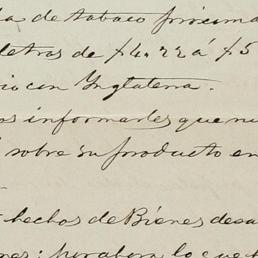 da de tabaco próxima
letras de $4.22 á $5
io con Inglaterra.
os informarles que nu
sobre su producto en
hechos de Bienes desa
nes; por ahora lo que